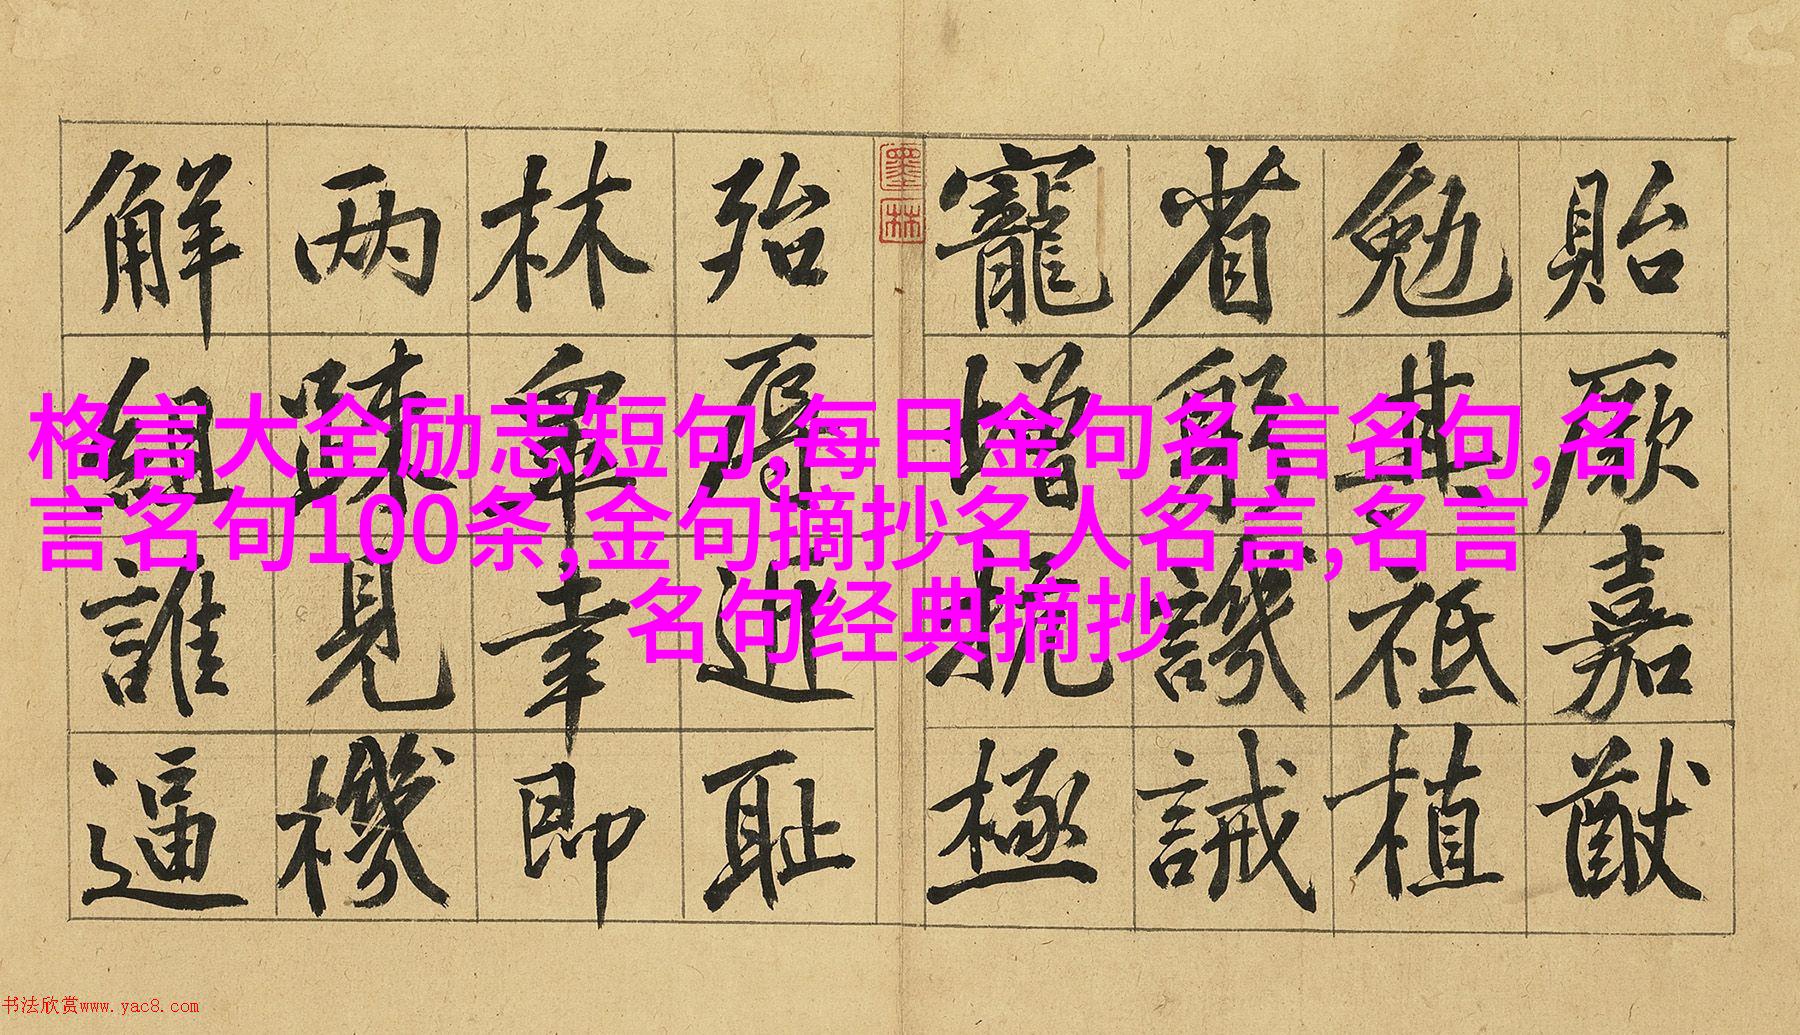 貽厥嘉猷
勉其祗植
省躬譏誡
寵增抗極
墨林
殆辱近耻
林皐幸即
两疎見機
解組誰逼
格言大全励志短句,每日金句名言名句,名
言名句100条,金句摘抄名人名言,名言
名句经典摘抄
书法欣赏www.yac8.com